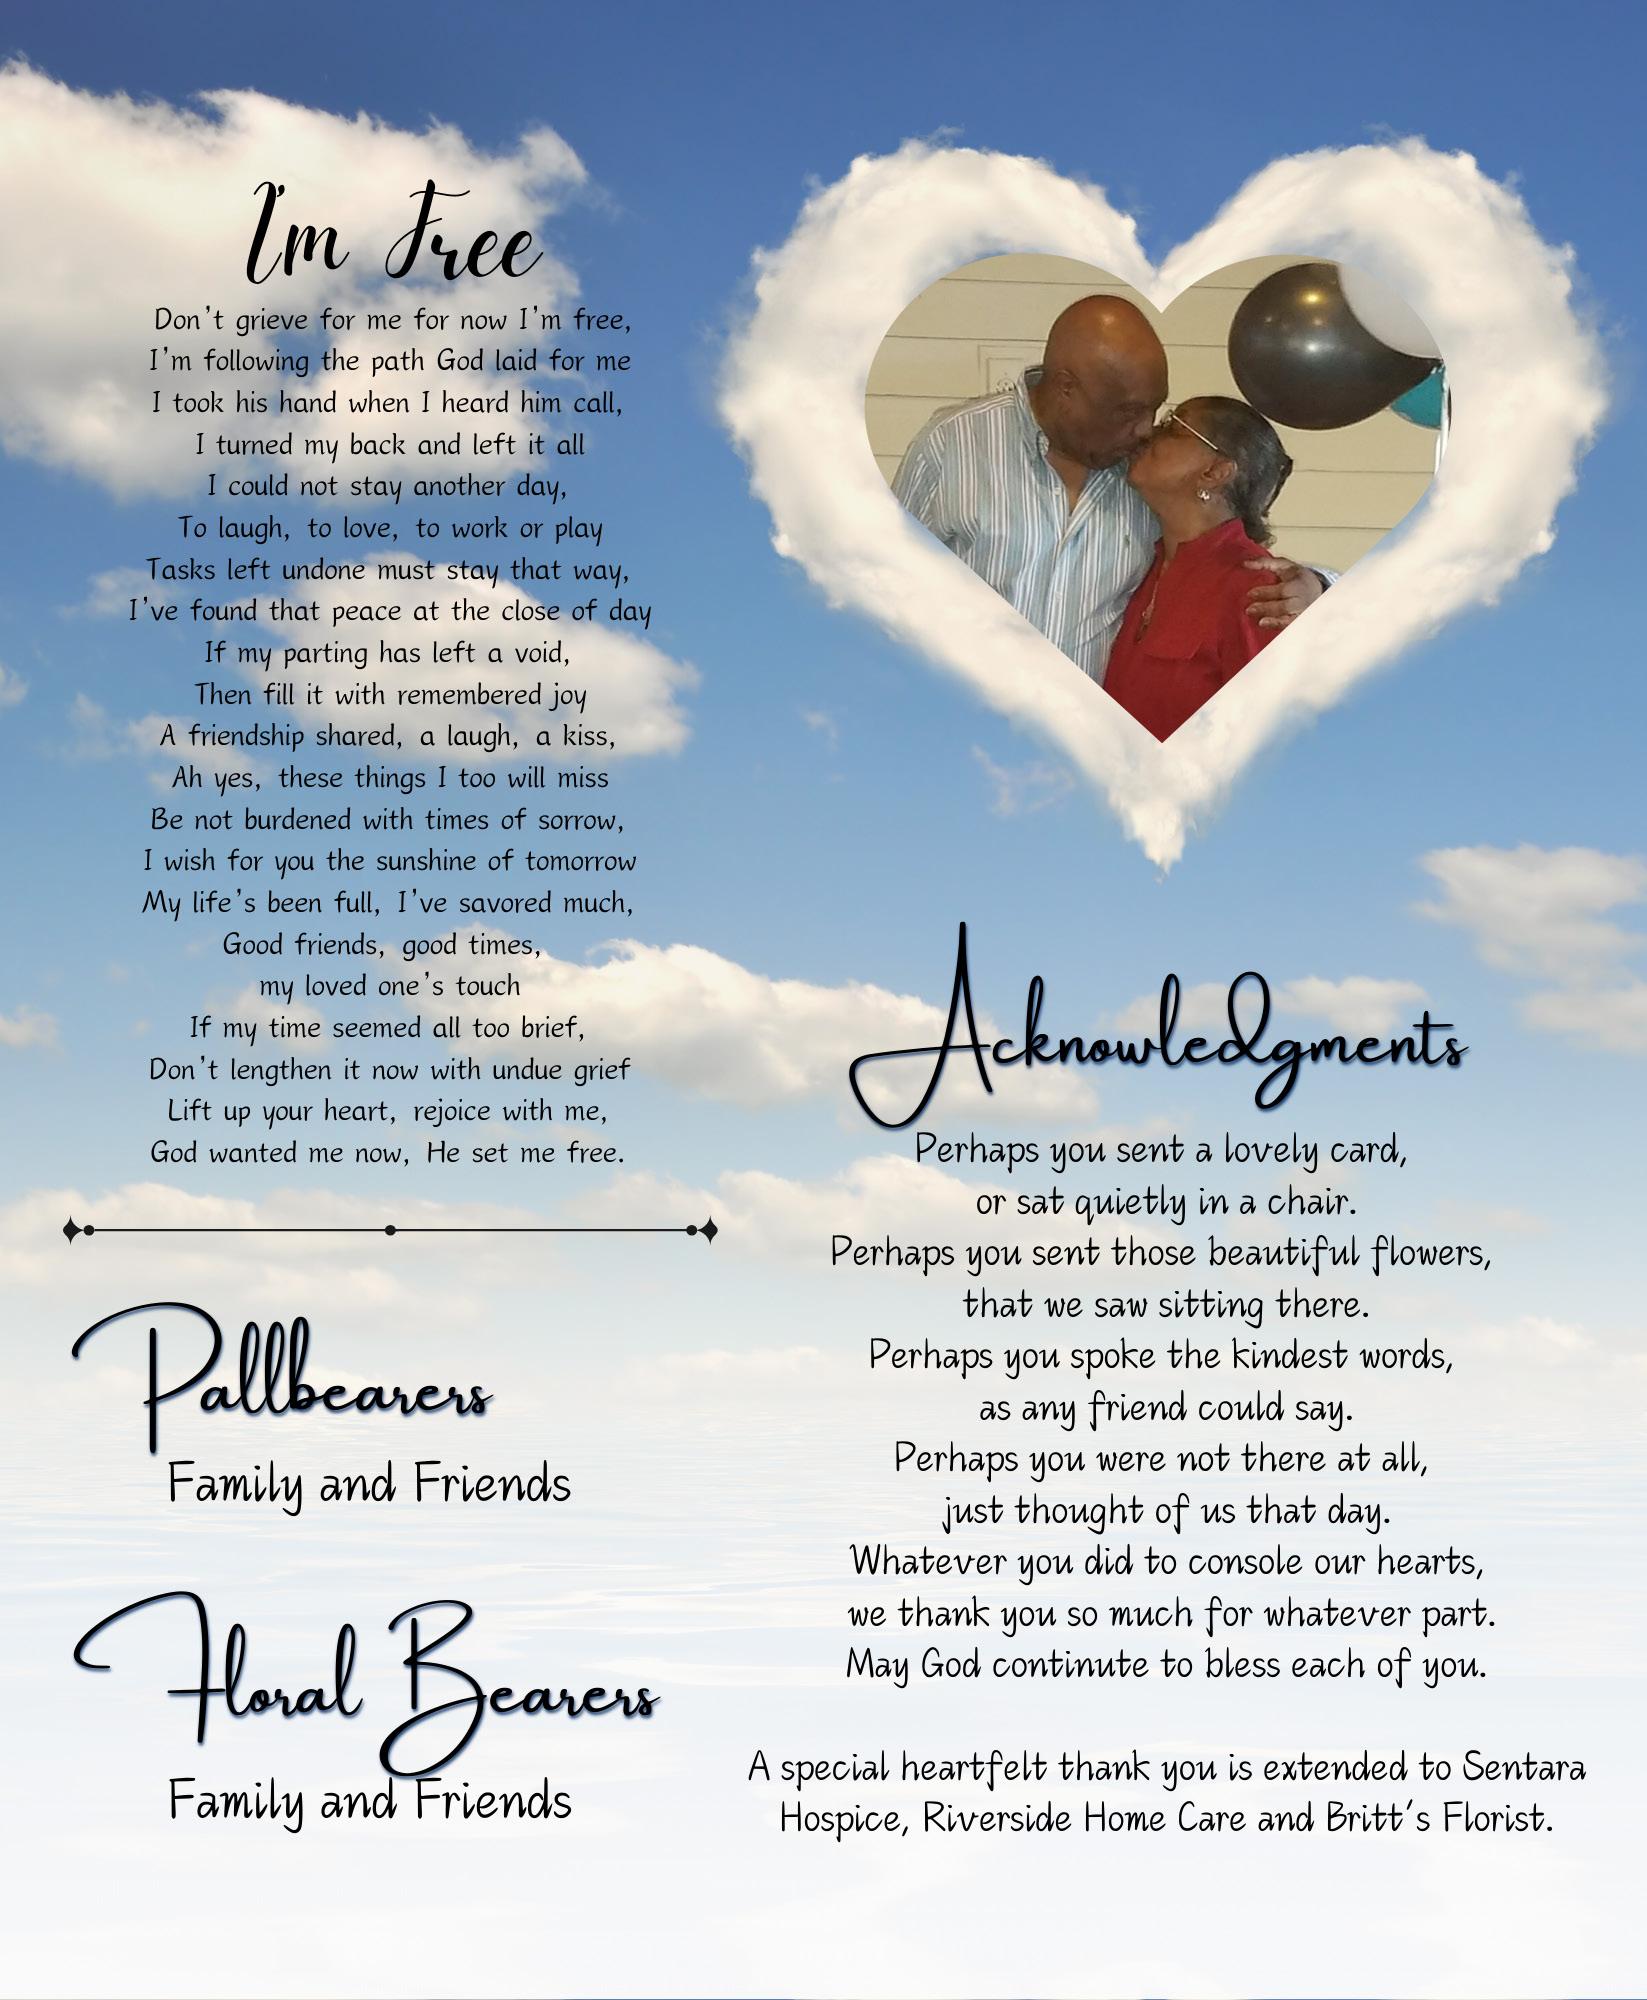 I'm Free
Don't grieve for me for now I'm free,
I'm following the path God laid for me
I took his hand when I heard him call,
I turned my back and left it all
I could not stay another day,
To laugh, to love, to work or play
Tasks left undone must stay that way,
I've found that peace at the close of day
If my parting has left a void,
Then fill it with remembered joy
A friendship shared, a laugh, a kiss,
Ah yes, these things I too will miss
Be not burdened with times of sorrow,
I wish for you the sunshine of tomorrow
My life's been full, I've savored much,
Good friends, good times,
my loved one's touch
If my time seemed all too brief,
Don't lengthen it now with undue grief
Lift up your heart, rejoice with me,
God wanted me now, He set me free.
Pallbearers
Family and Friends
Floral Bearers
Family and Friends
Acknowledgments
Perhaps you sent a lovely card,
or sat quietly in a chair.
Perhaps you sent those beautiful flowers,
that we saw sitting there.
Perhaps you spoke the kindest words,
as any friend could say.
Perhaps you were not there at all,
just thought of us that day.
Whatever you did to console our hearts,
we thank you so much for whatever part.
May God continute to bless each of you.
A special heartfelt thank you is extended to Sentara
Hospice, Riverside Home Care and Britt's Florist.